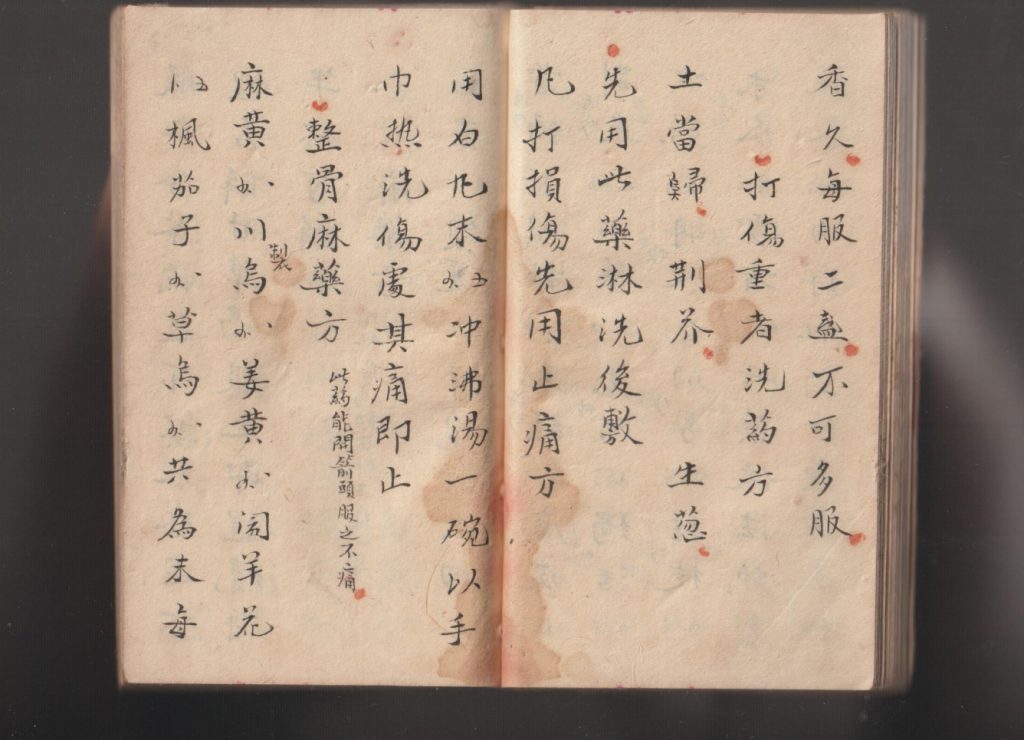 香久每服二盏不可多服
打傷重者洗药方
土當歸 荆芥 生葱
先用此藥淋洗後敷
凡打損傷先用止痛方
用 末 冲沸湯一碗以手
巾热洗傷處其痛即止
整骨麻藥方 此药能開箭頭服之不痛
麻黄 川烏 製 姜黄 闹羊花
楓茄子 草烏 共為末每